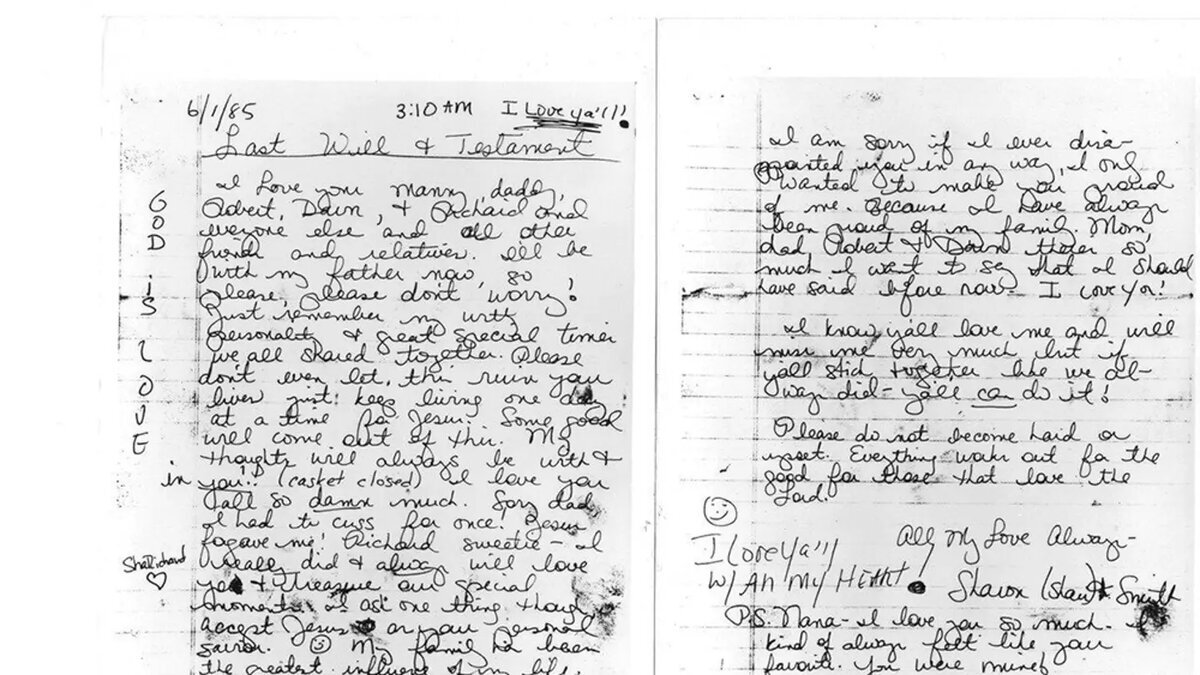 6/1/85 3:10 AM I Love ya'll!
Last Will & Testament
GOD iS LOVE
I Love you mommy, daddy,
Robert, Dawn, & Richard and
everyone else and all other
friends and relatives. I'll be
with my father now, so
please, please don't worry!
Just remember my witty
personality & great special times
we all shared together. Please
don't ever let this ruin your
lives just keep living one day
at a time for Jesus. Some good
will come out of this. My
thoughts will always be with &
in you!! (casket closed) I love you
all so damn much. Sorry dad,
I had to cuss for once! Jesus
forgave me! Richard sweetie - I
really did & always will love
you & treasure our special
moments. I ask one thing though,
accept Jesus as your personal
savior. My family has been
the greatest influence of my life.
Richard
I am sorry if I ever disa-
pointed you in any way, I only
wanted to make you proud
of me. Because I have always
been proud of my family. Mom,
dad Robert & Dawn theres so
much I want to say that I should
have said before now - I love you!
I know y'all love me and will
miss me very much but if
y'all stick together like we al-
ways did - y'all can do it!
Please do not become hard or
upset. Everything works out for the
good for those that love the
Lord.
I Love Ya'll
w/ All My Heart!
All My Love Always-
Sharon (Shari) Smith
P.S. Nana - I love you so much. I
kind of always felt like your
favorite. You were mine!